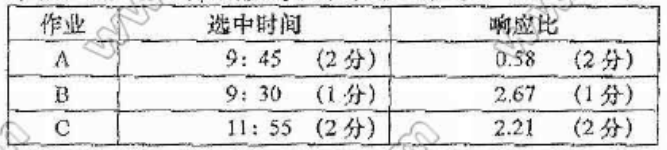 作业 选中时间 响应比
A 9：45 （2分） 0.58 （2分）
B 9：30 （1分） 2.67 （1分）
C 11：55 （2分） 2.21 （2分）